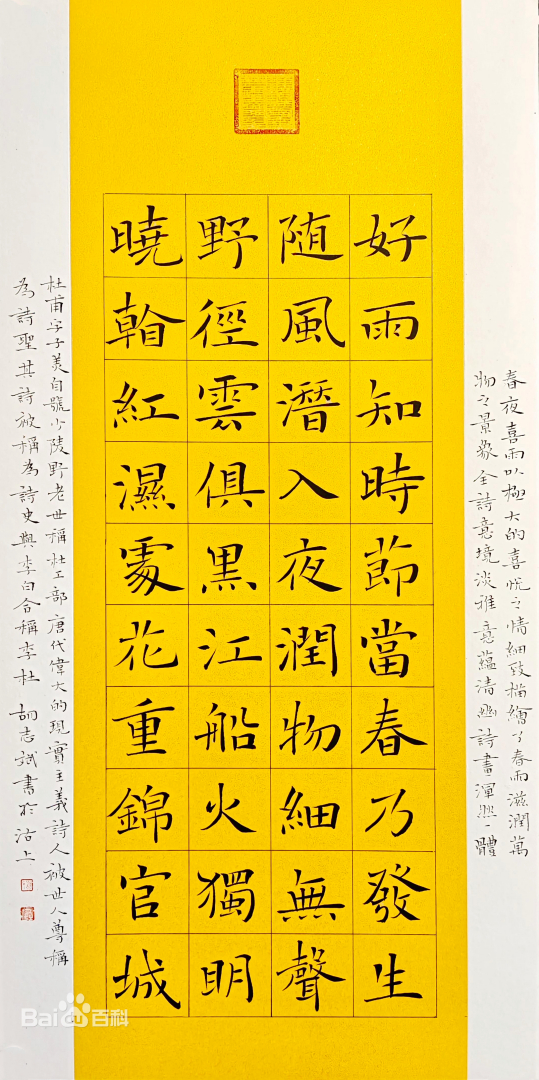 春夜喜雨以極大的喜悦之情細致描繪了春雨滋潤萬
物之景象全詩意境淡雅意蘊清幽詩書渾然一體
好雨知時節當春乃發生
随風潛入夜潤物細無聲
野徑雲俱黑江船火獨明
曉看紅濕處花重錦官城
杜甫字子美自號少陵野老世稱杜工部唐代偉大的現實主義詩人被世人尊稱
為詩聖其詩被稱為詩史與李白合稱李杜 胡志斌書於沽上
Bai百科